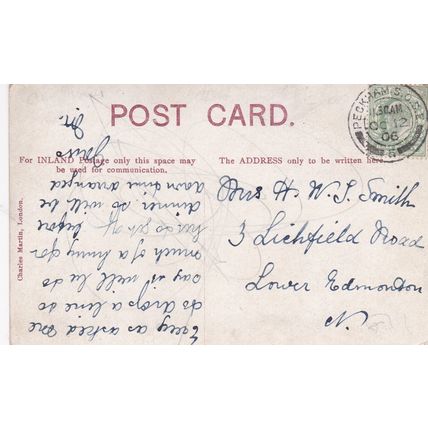 POST CARD.
For INLAND Postage only this space may
be used for communication.
The ADDRESS only to be written here.
Charles Martin, London.
PECKHAM S.O. S.E.
OC 12
06
Mrs H. W. J. Smith
3 Lichfield Road
Lower Edmonton
N.
as asked me
to drop a line to
say it will be so
much of a hurry for
to get off before
dinner, so will be
down time arranged
Yours